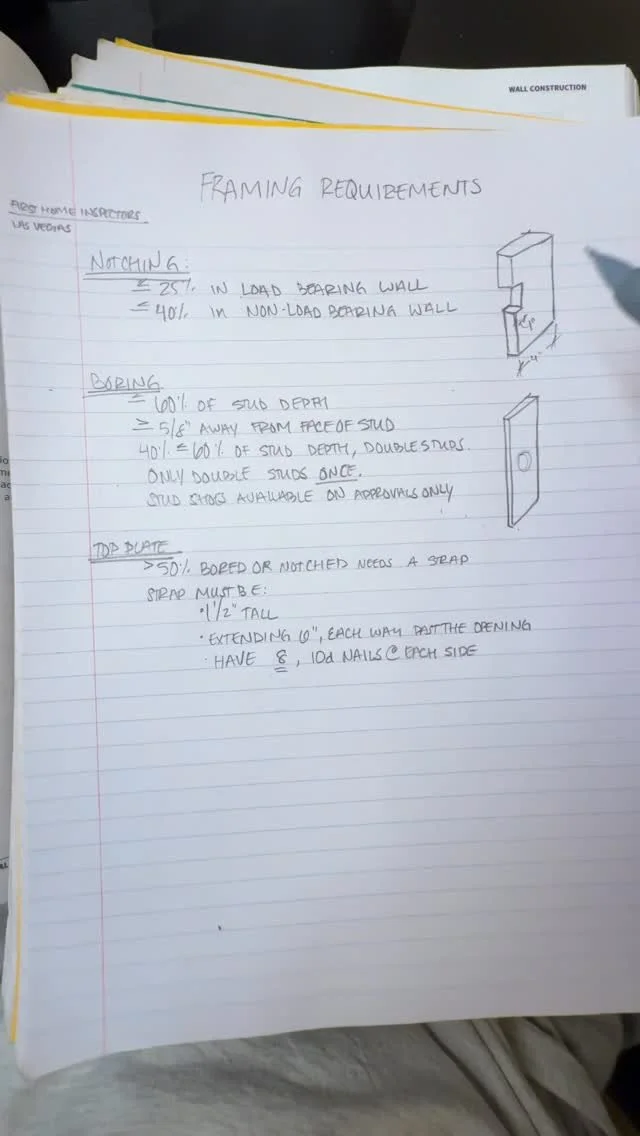 WALL CONSTRUCTION
FRAMING REQUIREMENTS
FIRST HOME INSPECTORS
LAS VEGAS
NOTCHING:
≤ 25% IN LOAD BEARING WALL
≤ 40% IN NON-LOAD BEARING WALL
BORING
≤ 60% OF STUD DEPTH
≥ 5/8" AWAY FROM FACE OF STUD
40% ≤ 60% OF STUD DEPTH, DOUBLE STUDS.
ONLY DOUBLE STUDS ONCE.
STUD SHOES AVAILABLE ON APPROVALS ONLY
TOP PLATE
>50% BORED OR NOTCHED NEEDS A STRAP
STRAP MUST BE:
• 1 1/2" TALL
• EXTENDING 6", EACH WAY PAST THE OPENING
• HAVE 8, 10d NAILS @ EACH SIDE